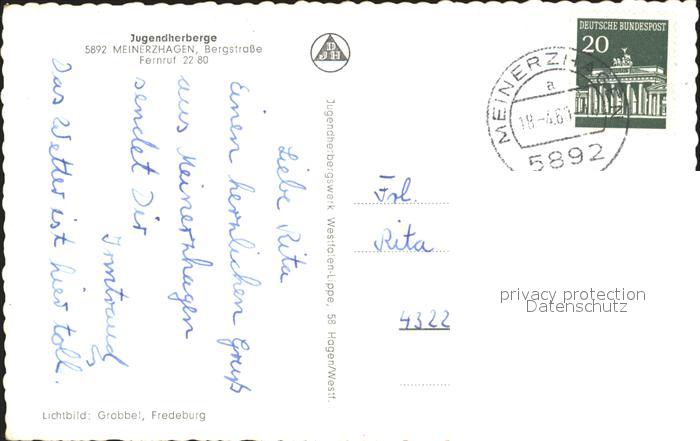 Jugendherberge
5892 MEINERZHAGEN, Bergstraße
Fernruf 22 80
Liebe Rita
Einen herrlichen Gruß
aus Meinerzhagen
sendet Dir
Irmtraud
Das Wetter ist hier toll.
Lichtbild: Grobbel, Fredeburg
Jugendherbergswerk Westfalen-Lippe, 58 Hagen/Westf.
DEUTSCHE BUNDESPOST
20
MEINERZHAGEN
a
5892
Frl.
Rita
4322
privacy protection
Datenschutz